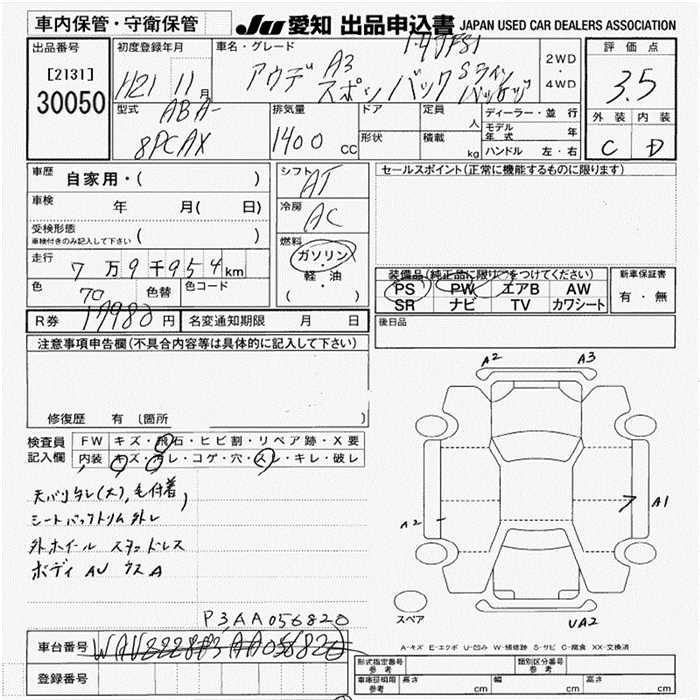 車内保管・守衛保管
JU 愛知 出品申込書 JAPAN USED CAR DEALERS ASSOCIATION
出品番号
[2131]
30050
初度登録年月
H21 11月
車名・グレード
アウデ A3 1.4TFSI
スポーツバック Sライン
パッケージ
2WD
・
4WD
評価点
3.5
外装 内装
C D
型式
ABA-
8PCAX
排気量
1400 cc
ドア
形状
定員
人
積載
kg
ディーラー・並行
モデル年式 年
ハンドル 左・右
車歴 自家用・( )
車検 年 月( 日)
受検形態
車検付きのみ記入して下さい ( )
走行 7万9千954km
色 70 色替 色コード
R券 17980円 名変通知期限 月 日
シフト
AT
冷房
AC
燃料
ガソリン
・
軽・油
( )
セールスポイント(正常に機能するものに限ります)
装備品(純正品に限り○をつけてください)
PS PW エアB AW
SR ナビ TV カワシート
新車保証書
有・無
後日品
注意事項申告欄(不具合内容等は具体的に記入して下さい)
修復歴 有 [箇所 ]
検査員
記入欄
FW キズ・飛石・ヒビ割・リペア跡・X要
内装 キズ・汚レ・コゲ・穴・スレ・キレ・破レ
天バリタレ(大), 毛付着,
シートバックトリム外レ
外ホイール スタッドレス
ボディ AU ウスA
A2 A3
A2 A1
スペア
UA2
A-キズ E-エクボ U-凹み W-補修跡 S-サビ C-腐食 XX-交換済
P3AA056820
車台番号 WAUZZZ8P3AA056820
登録番号
形式指定番号
参考
類別区分番号
参考
車庫証明用
参考
長さ cm 幅 cm 高さ cm